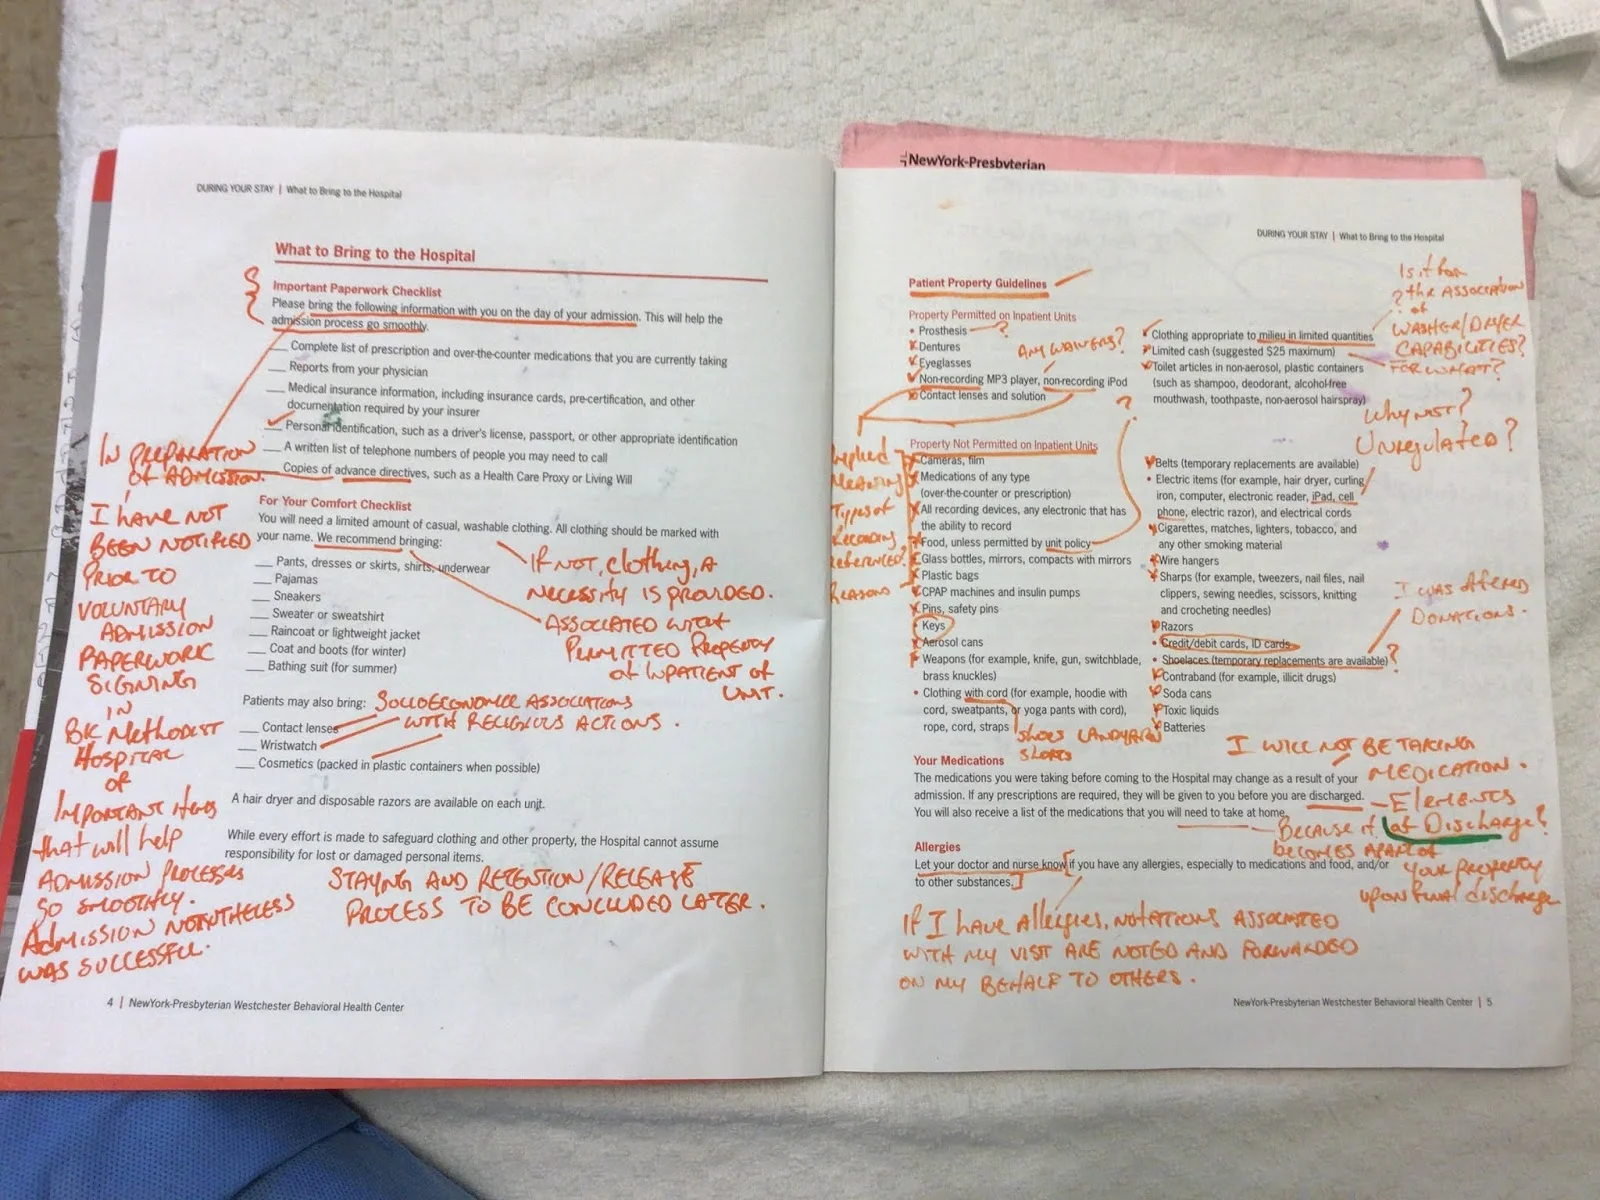 DURING YOUR STAY | What to Bring to the Hospital
What to Bring to the Hospital
Important Paperwork Checklist
Please bring the following information with you on the day of your admission. This will help the
admission process go smoothly.
___ Complete list of prescription and over-the-counter medications that you are currently taking
___ Reports from your physician
___ Medical insurance information, including insurance cards, pre-certification, and other
documentation required by your insurer
___ Personal identification, such as a driver's license, passport, or other appropriate identification
___ A written list of telephone numbers of people you may need to call
___ Copies of advance directives, such as a Health Care Proxy or Living Will
For Your Comfort Checklist
You will need a limited amount of casual, washable clothing. All clothing should be marked with
your name. We recommend bringing:
___ Pants, dresses or skirts, shirts, underwear
___ Pajamas
___ Sneakers
___ Sweater or sweatshirt
___ Raincoat or lightweight jacket
___ Coat and boots (for winter)
___ Bathing suit (for summer)
Patients may also bring:
___ Contact lenses
___ Wristwatch
___ Cosmetics (packed in plastic containers when possible)
A hair dryer and disposable razors are available on each unit.
While every effort is made to safeguard clothing and other property, the Hospital cannot assume
responsibility for lost or damaged personal items.
4 | NewYork-Presbyterian Westchester Behavioral Health Center
IN PREPARATION
OF ADMISSION.
I HAVE NOT
BEEN NOTIFIED
PRIOR TO
VOLUNTARY
ADMISSION
PAPERWORK
SIGNING
IN
BK METHODIST
HOSPITAL
OF
IMPORTANT ITEMS
that will help
ADMISSION PROCESSES
GO SMOOTHLY.
ADMISSION NONETHELESS
WAS SUCCESSFUL.
IF NOT, Clothing, A
NECESSITY IS PROVIDED.
ASSOCIATED WITH
PERMITTED PROPERTY
of INPATIENT OF
UNIT.
SOCIOECONOMIC ASSOCIATIONS
WITH RELIGIOUS ACTIONS.
STAYING AND RETENTION/RELEASE
PROCESS TO BE CONCLUDED LATER.
NewYork-Presbyterian
DURING YOUR STAY | What to Bring to the Hospital
Patient Property Guidelines
Property Permitted on Inpatient Units
• Prosthesis ?
• Dentures
• Eyeglasses
• Non-recording MP3 player, non-recording iPod
• Contact lenses and solution
ANY WAIVERS?
• Clothing appropriate to milieu in limited quantities
• Limited cash (suggested $25 maximum)
• Toilet articles in non-aerosol, plastic containers
(such as shampoo, deodorant, alcohol-free
mouthwash, toothpaste, non-aerosol hairspray)
Is it for
? the ASSOCIATION
of
WASHER/DRYER
CAPABILITIES?
FOR WHAT?
Why not?
Unregulated?
Property Not Permitted on Inpatient Units
• Cameras, film
• Medications of any type
(over-the-counter or prescription)
• All recording devices, any electronic that has
the ability to record
• Food, unless permitted by unit policy
?
• Glass bottles, mirrors, compacts with mirrors
• Plastic bags
• CPAP machines and insulin pumps
• Pins, safety pins
• Keys
• Aerosol cans
• Weapons (for example, knife, gun, switchblade,
brass knuckles)
• Clothing with cord (for example, hoodie with
cord, sweatpants, or yoga pants with cord),
rope, cord, straps
MEANING
Types of
Recording
referenced?
Reasons
SHOES LANDYARN
SHORTS
• Belts (temporary replacements are available)
• Electric items (for example, hair dryer, curling
iron, computer, electronic reader, iPad, cell
phone, electric razor), and electrical cords
• Cigarettes, matches, lighters, tobacco, and
any other smoking material
• Wire hangers
• Sharps (for example, tweezers, nail files, nail
clippers, sewing needles, scissors, knitting
and crocheting needles)
• Razors
• Credit/debit cards, ID cards
• Shoelaces (temporary replacements are available) ?
• Contraband (for example, illicit drugs)
• Soda cans
• Toxic liquids
• Batteries
I WAS OFFERED
DONATIONS.
Your Medications
The medications you were taking before coming to the Hospital may change as a result of your
admission. If any prescriptions are required, they will be given to you before you are discharged.
You will also receive a list of the medications that you will need to take at home.
I WILL NOT BE TAKING
MEDICATION.
Elements
of Discharge?
BECAUSE it
becomes APART of
your PROPERTY
upon final discharge
Allergies
Let your doctor and nurse know if you have any allergies, especially to medications and food, and/or
to other substances.
IF I HAVE Allergies, NOTATIONS ASSOCIATED
WITH MY VISIT ARE NOTED AND FORWARDED
ON MY BEHALF TO OTHERS.
NewYork-Presbyterian Westchester Behavioral Health Center | 5